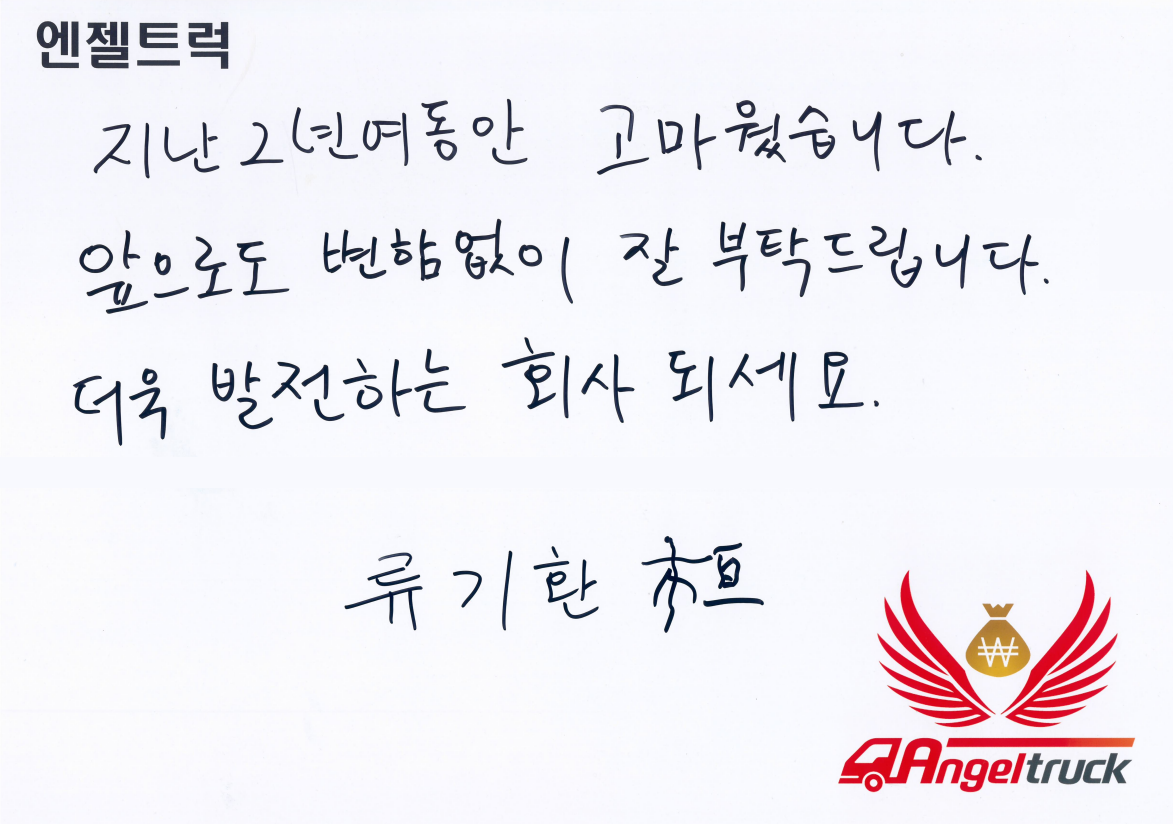 엔젤트럭
지난 2년여동안 고마웠습니다.
앞으로도 변함없이 잘 부탁드립니다.
더욱 발전하는 회사 되세요.
류기환 桓
₩
Angeltruck